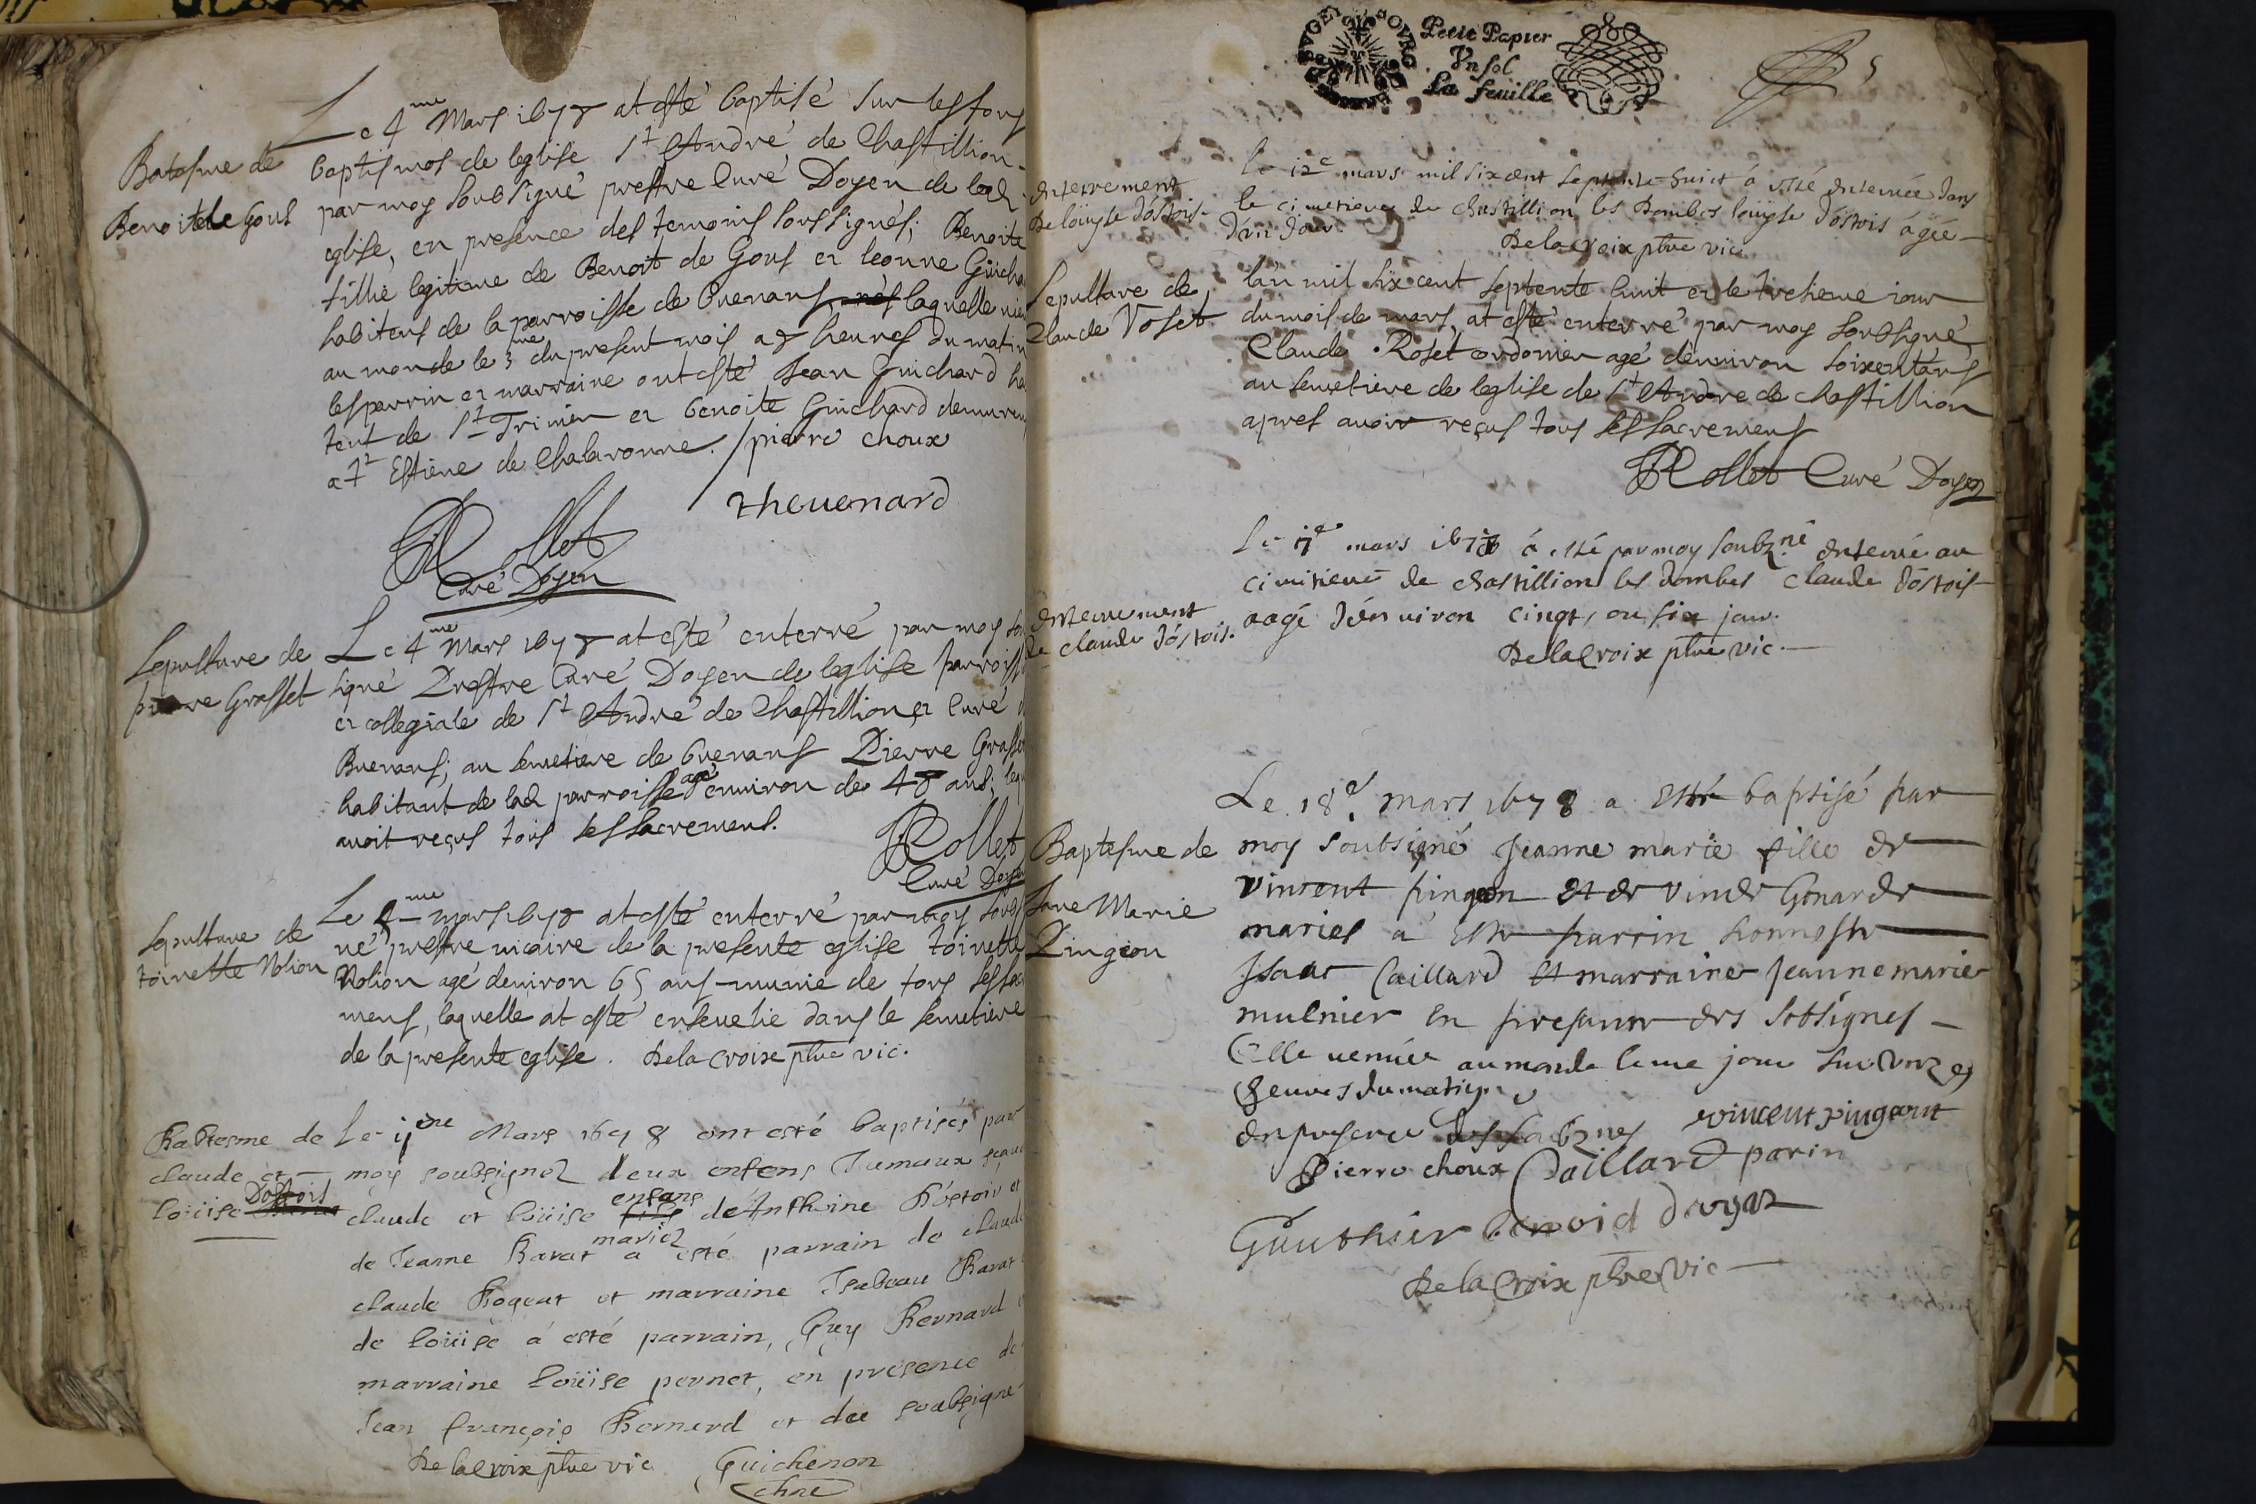 Batesme de
Benoitte Gous
Le 4me Mars 1678 at esté baptisé sur les fons
baptismos de leglise St André de Chastillion
par moy soubsigné prestre Curé Doyen de lad
eglise, en presence des temoins soussignés; Benoite
fillie legitime de Benoit de Gous et leonne Guicha
habitens de la parroisse de Buenans laquelle
au monde le 3me du present mois a 8 heures du matin
les parrin et marraine ont esté Jean Guichard ha
tent de St Trimier et benoite Guichard demuren
a St Estiene de Chalaronne. pierre choux
thevenard
Rollet
Curé Doyen
Sepulture de
pierre Grasset
Le 4me Mars 1678 at esté enterré par moy so
signé Prestre Curé Doyen de leglise parroiss
et collegiale de St André de Chastillion et Curé
Buenans; au semetiere de buenans Pierre Grasse
habitant de lad parroisse agé environ de 48 ans, leq
avoit reçus tous ses sacremens.
Rollet
Curé Doyen
Sepulture de
toinette Nolion
Le mars 1678 at esté enterré par moy soubs
né prestre vicaire de la presente eglise toinette
Nolion agé denviron 65 ans munie de tous ses sac
mens, laquelle at esté ensevelie dans le semetiere
de la presente eglise. Delacroix pbre vic.
Baptesme de
claude et
Dostois
loüise
Le 11eme Mars 1678 ont esté baptisés par
moy soubsignez deux enfens Jumaux
claude et loüise enfans d'Anthoine Dostoir et
de Jeanne Barat mariez a esté parrain de claude
claude Rogeat et marraine Isabeau Barat
de loüise á esté parrain, Guy Bernard
marraine loüise pernet, en presence de
Jean françois Bernard et des soubsigne
Delacroix pbre vic Guichenon
chne
BUGEY BOURG
Petit Papier
Un sol
La feuille
5
Enterrement
De loüyse dóstois
le 12e mars mil sixcent septente huict á esté enterrée dans
le cimetiere de chastillion les Dombes loüyse dóstois ágée
d'un jour.
Delacroix pbre vic
Sepulture de
Claude Roset
lan mil six cent septente huit et le tresieme iour
du mois de mars, at esté enterré par moy soubsigné
Claude Roset cordonier agé denviron soixentans
au semetiere de leglise de St Andre de chastillion
apres avoir reçus tous ses sacremens
Rollet Curé Doyen
Enterrement
de claude dóstois.
Le 17e mars 1678 á esté par moy soubzné enterré au
cimitiere de chastillion les dombes claude dóstois
aagé d'énviron cinqt, ou six jour.
Delacroix pbre vic.
Baptesme de
Jane Marie
Pingeon
Le 18e mars 1678 a esté baptisé par
moy soubsigné Jeanne marie fille de
vincent pingon et de vinde Gonarde
mariés á esté parrin honneste
Isaac Caillard et marraine Jeanne marie
mulnier en presance des sobsignes
Celle venüe au monde le me jour sur onze
heures du matiyn
En presence des soubznes vincent pingeont
Pierre choux Caillard parin
Gauthier benoid
Delacroix pbre vic